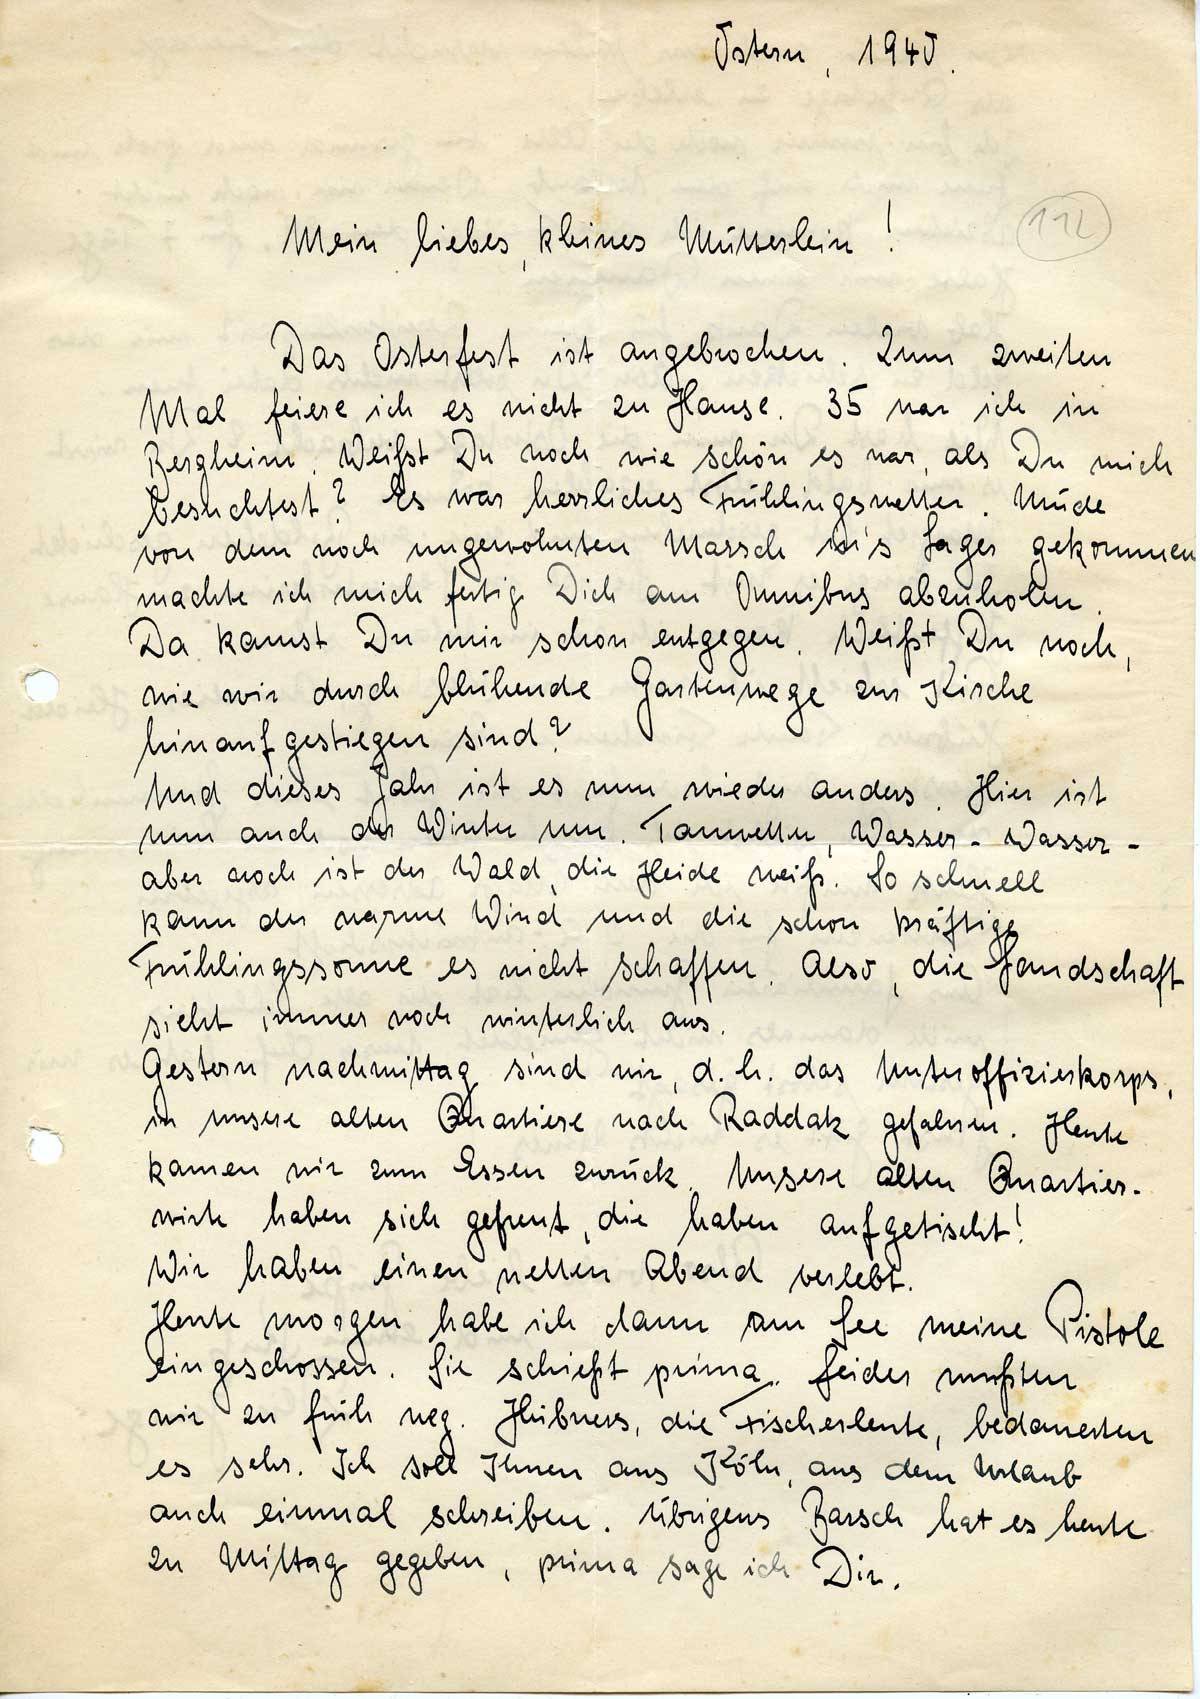 Ostern, 1940.
112
Mein liebes, kleines Mütterlein!
Das Osterfest ist angebrochen. Zum zweiten
Mal feiere ich es nicht zu Hause. 35 war ich in
Bergheim. Weißt Du noch wie schön es war, als Du mich
besuchtest? Es war herrliches Frühlingswetter. Müde
von dem noch ungewohnten Marsch in's Lager gekommen
machte ich mich fertig Dich am Omnibus abzuholen.
Da kamst Du mir schon entgegen. Weißt Du noch,
wie wir durch blühende Gartenwege zur Kirche
hinaufgestiegen sind?
Und dieses Jahr ist es nun wieder anders. Hier ist
nun auch der Winter um. Tauwetter, Wasser - Wasser -
aber noch ist der Wald, die Heide weiß. So schnell
kann der warme Wind und die schon kräftige
Frühlingssonne es nicht schaffen. Also, die Landschaft
sieht immer noch winterlich aus.
Gestern nachmittag sind wir, d.h. das Unteroffizierkorps,
in unsere alten Quartiere nach Raddatz gefahren. Heute
kamen wir zum Essen zurück. Unsere alten Quartier-
wirte haben sich gefreut, die haben aufgetischt!
Wir haben einen netten Abend verlebt.
Heute morgen habe ich dann am See meine Pistole
eingeschossen. Sie schießt prima. Leider mußten
wir zu früh weg. Hübners, die Fischerleute, bedauerten
es sehr. Ich soll Ihnen aus Köln, aus dem Urlaub
auch einmal schreiben. Übrigens Barsch hat es heute
zu Mittag gegeben, prima sage ich Dir.